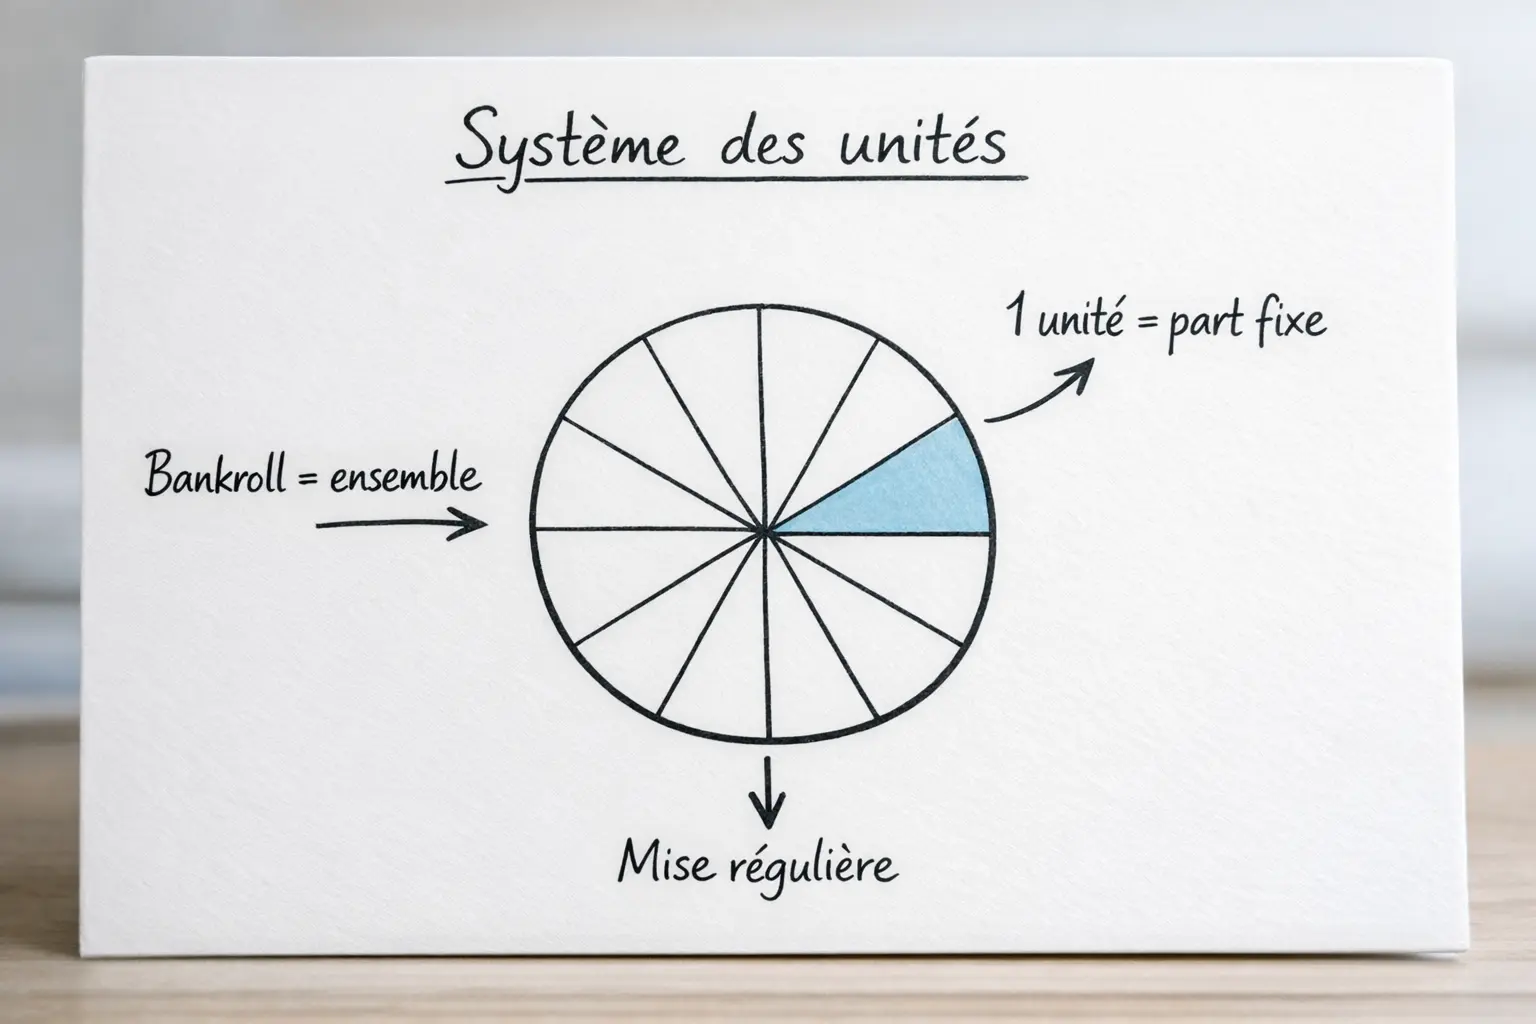 Système des unités
1 unité = part fixe
Bankroll = ensemble
Mise régulière